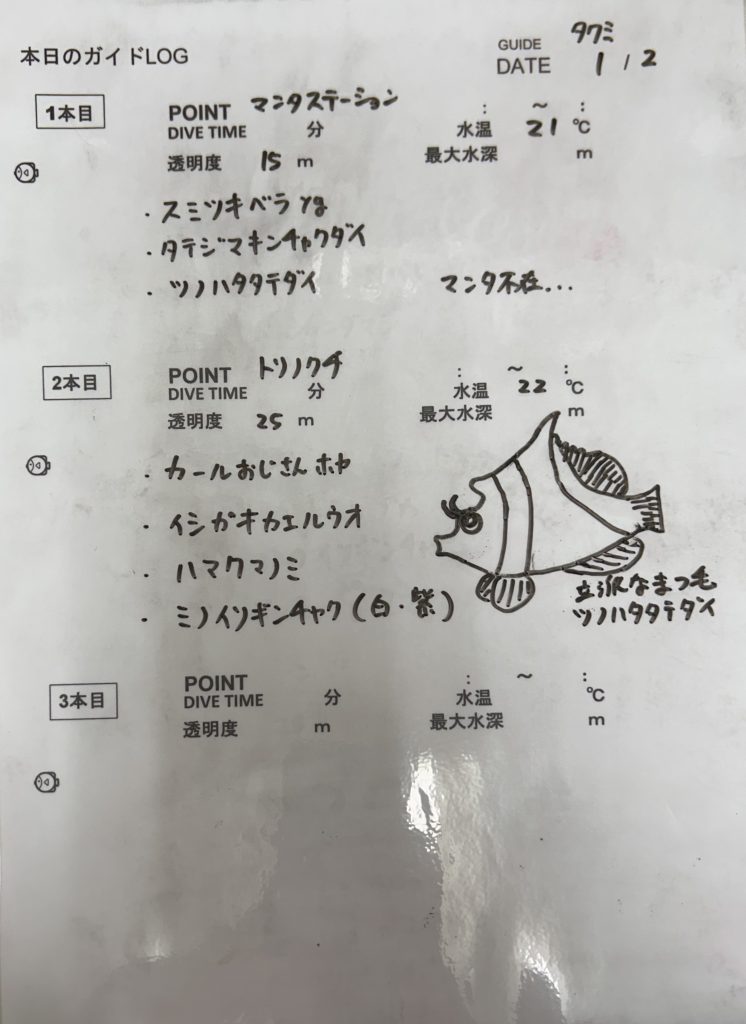 本日のガイドLOG
GUIDE タクミ
DATE 1 / 2
1本目
POINT マンタステーション : ~ :
DIVE TIME 分 水温 21 ℃
透明度 15 m 最大水深 m
・スミツキベラ yg
・タテジマキンチャクダイ
・ツノハタタテダイ マンタ不在...
2本目
POINT トリノクチ : ~ :
DIVE TIME 分 水温 22 ℃
透明度 25 m 最大水深 m
・カールおじさんホヤ
・イシガキカエルウオ
・ハマクマノミ
・ミノイソギンチャク(白・紫)
立派なまつ毛
ツノハタタテダイ
3本目
POINT : ~ :
DIVE TIME 分 水温 ℃
透明度 m 最大水深 m